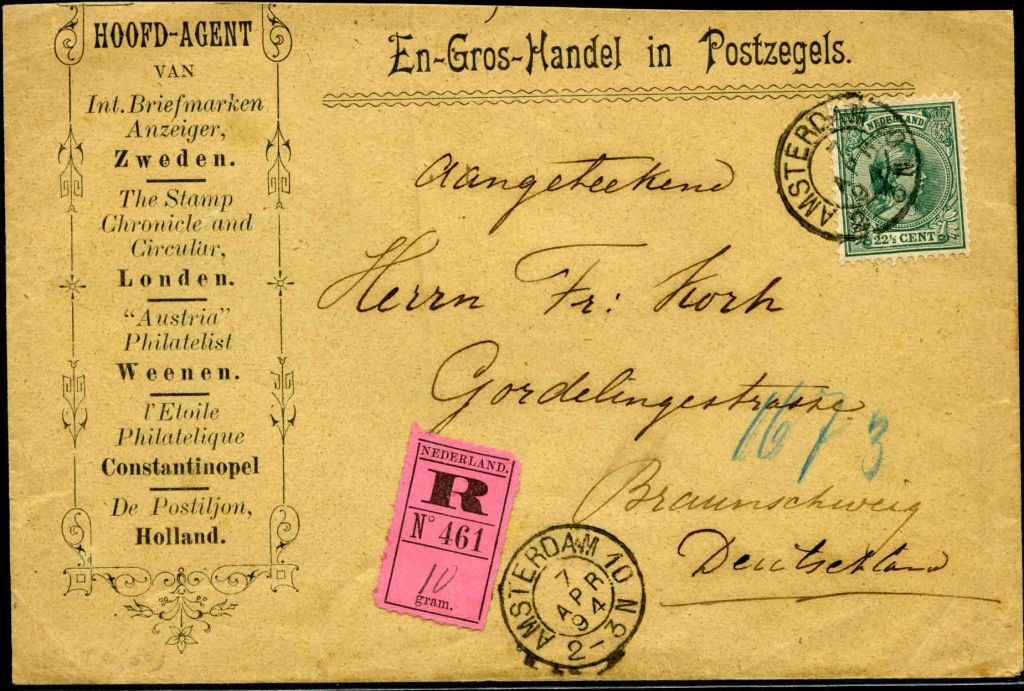 HOOFD-AGENT
VAN
Int. Briefmarken
Anzeiger,
Zweden.
The Stamp
Chronicle and
Circular,
Londen.
"Austria"
Philatelist
Weenen.
l'Etoile
Philatelique
Constantinopel
De Postiljon,
Holland.
En-Gros-Handel in Postzegels.
AMSTERDAM
NEDERLAND
22½ CENT
Aangeteekend
Herrn Fr: Korh
Gordelingestrasse
1673
Braunschweig
Deutschland
NEDERLAND.
R
No 461
10
gram.
AMSTERDAM 10 N
7
APR
94
2-3